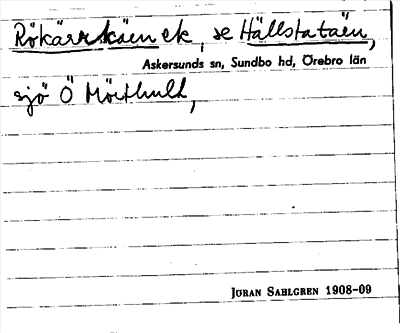 Rökärrkäen ek, se Hällstataén,
Askersunds sn, Sundbo hd, Örebro län
sjö Ö Mörthult,
JÖRAN SAHLGREN 1908-09